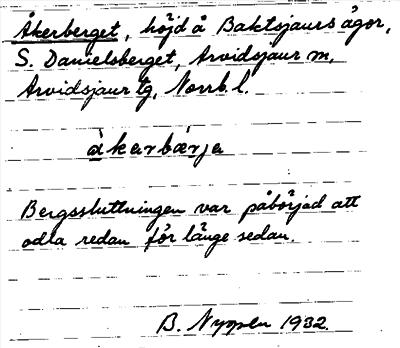 Åkerberget, höjd å Baktsjaurs ägor,
S. Danielsberget, Arvidsjaur m,
Arvidsjaur tg, Norrb. l.
åkarbärja
Bergssluttningen var påbörjad att
odla redan för länge sedan.
B. Nyzelu 1932.